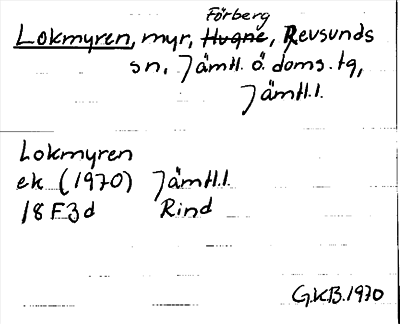 Förberg
Lokmyren, myr, Hugne, Revsunds
sn, Jämtl. ö. doms. tg,
Jämtl.l.
Lokmyren
ek (1970) Jämtl.l.
18F3d Rind
G.K.B. 1970